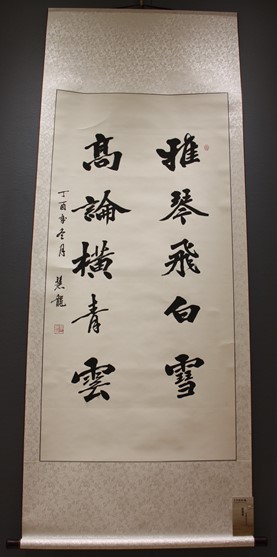 雅琴飛白雪
高論橫青雲
丁酉年冬月 慧龍